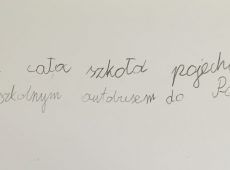 cała szkoła pojech
szkolnym autobusem do Po